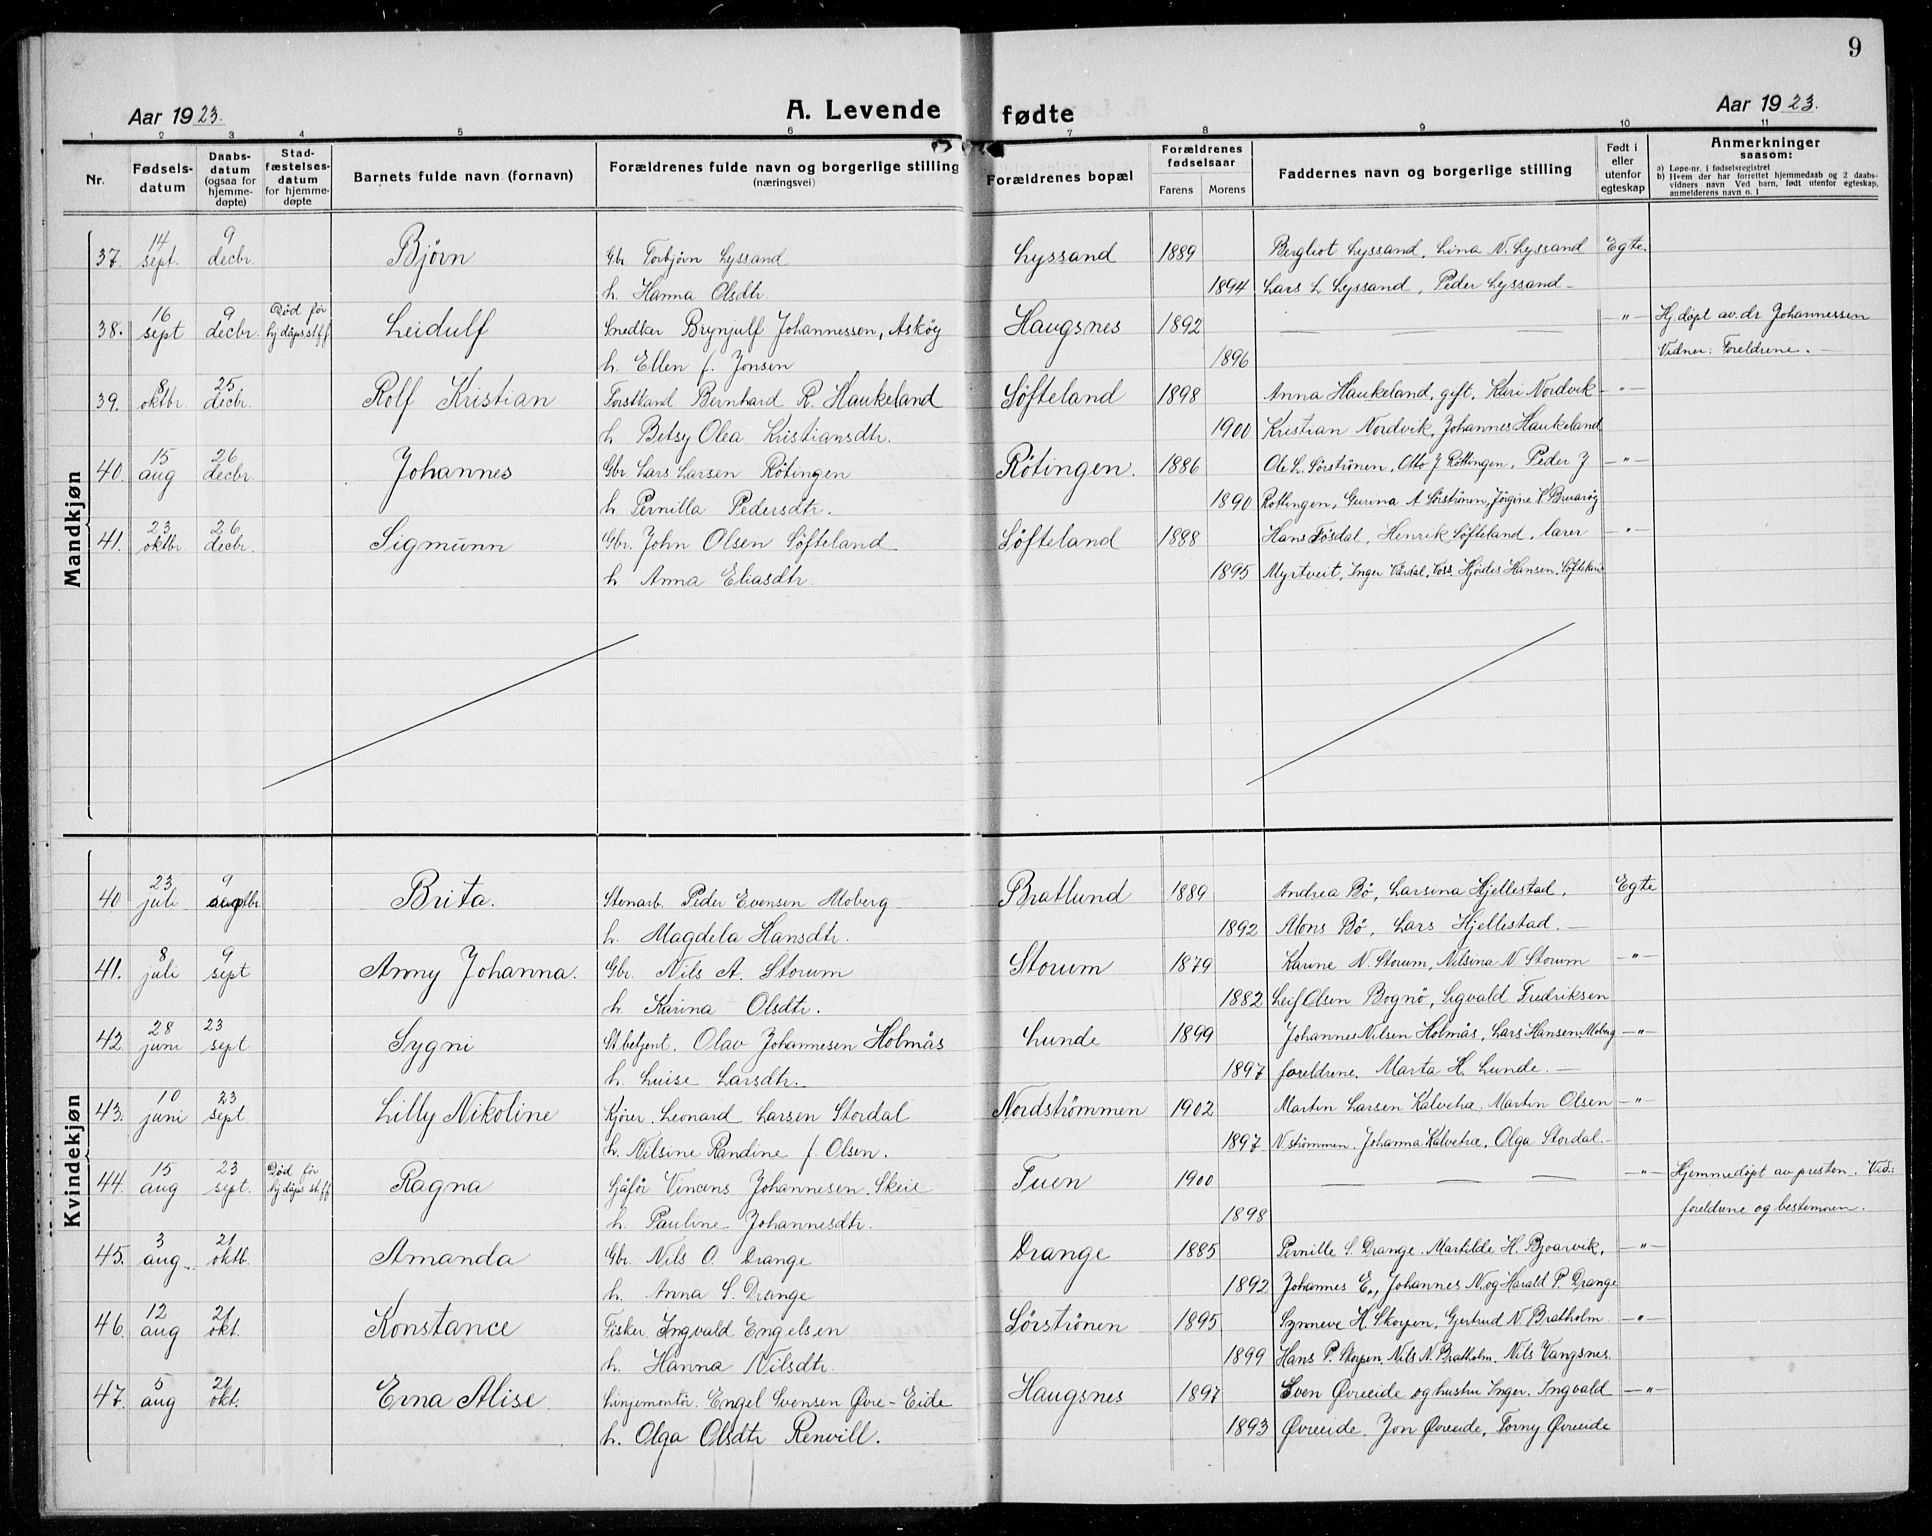 9
Aar 1923. A. Levende fødte Aar 1923.
1 2 3 4 5 6 7 8 9 10 11
Nr. Fødsels-datum Daabs-datum (ogsaa for hjemme-døpte) Stad-fæstelses-datum for hjemme-døpte Barnets fulde navn (fornavn) Forældrenes fulde navn og borgerlige stilling (næringsvei) Forældrenes bopæl Forældrenes fødselsaar Farens Morens Faddernes navn og borgerlige stilling Født i eller utenfor egteskap Anmerkninger saasom:
a) Løpe-nr. i fødselsregistret
b) Hvem der har forrettet hjemmedaab og 2 daabs-vidners navn Ved barn, født utenfor egteskap, anmelderens navn o. l
Mandkjøn
37. 14 sept. 9 decbr. Bjørn Gbr. Torbjörn Lyssand Lyssand 1889 Bergliot Lyssand, Lina N. Lyssand Egte.
h. Hanna Olsdtr. 1894 Lars L. Lyssand, Peder Lyssand
38. 16 sept 9 decbr. Död för hj.döps.st.ff Leidulf Snedker Brynjulf Johannessen, Asköy Haugsnes 1892 — — — " — Hj.döpt av dr Johannessen
h. Ellen f. Jonsen 1896 Vidner: Foreldrene.
39. 8 oktbr. 25 decbr. Rolf Kristian Forstkand. Bernhard R. Haukeland Söfteland 1898 Anna Haukeland, gift, Kari Nordvik — " —
h. Betsy Olea Kristiansdtr. 1900 Kristian Nordvik, Johannes Haukeland
40. 15 aug 26 decbr. Johannes Gbr. Lars Larsen Rötingen Rötingen. 1886 Ole L. Sörströnen, Otto J Röttingen, Peder J — " —
h. Pernilla Pedersdtr. 1890 Rottingen, Gurina A Sörströnen, Jörgine K Bruaröy
41. 23 oktbr 26 decbr. Sigmunn Gbr. John Olsen Söfteland Söfteland 1888 Hans Fösdal, Henrik Söfteland, lærer — " —
h. Anna Eliasdtr. 1895 Myrtveit, Inger Vårdal, Voss. Hjördis Hansen, Söfteland
Kvindekjøn
40 23 juli 9 septbr. Brita. Stenarb. Peder Evensen Moberg Bratlund 1889 Andrea Bö, Larsina Hjellestad, Egte
h. Magdela Hansdtr. 1892 Mons Bö, Lars Hjellestad.
41. 8 juli 9 sept Anny Johanna. Gbr. Nils A. Storum Storum 1879 Karine N. Storum, Nilsina N Storum — " —
h. Karina Olsdtr. 1882 Leif Olsen Bognö, Sigvald Fredriksen
42. 28 juni 23 sept Sygni St.betjent. Olav Johannesen Holmås Lunde 1899 Johannes Nilsen Holmås, Lars Hansen Moberg — " —
h. Luise Larsdtr. 1897 foreldrene. Marta H. Lunde.
43. 10 juni 23 sept Lilly Nikoline Kjörer Leonard Larsen Stordal Nordströmmen 1902 Martin Larsen Kalvetræ, Martin Olsen — " —
h. Nilsine Randine f. Olsen. 1897 N.strömmen. Johanna Kalvetræ, Olga Stordal.
44. 15 aug 23 sept. Död för hj.döps st.ff Ragna Sjåför Vincens Johannesen Skeie Tuen 1900 — — — " — Hjemmedöpt av presten. Vid:
h. Pauline Johannesdtr. 1898 foreldrene og bestemoren.
45. 3 aug. 21 oktb. Amanda Gbr. Nils O. Drange Drange 1885 Pernille S. Drange. Martilde H. Bjoarvik, — " —
h. Anna S. Drange 1892 Johannes E., Johannes N. og Harald P. Drange
46. 12 aug 21 okt. Konstance Fisker Ingvald Engelsen Sörströnen 1895 Synneve H. Skorpen, Gjertrud N. Bratholm — " —
h. Hanna Nilsdtr. 1899 Hans P. Skorpen, Nils N. Bratholm, Nils Vangsnes.
47. 5 aug 21 okt. Erna Alise. Linjemontör. Engel Svensen Øvre-Eide Haugsnes 1897 Sven Øvreeide og hustru Inger. Ingvald — " —
h. Olga Olsdtr Renvill. 1893 Øvreeide. Jon Øvreeide, Torny Øvreeide